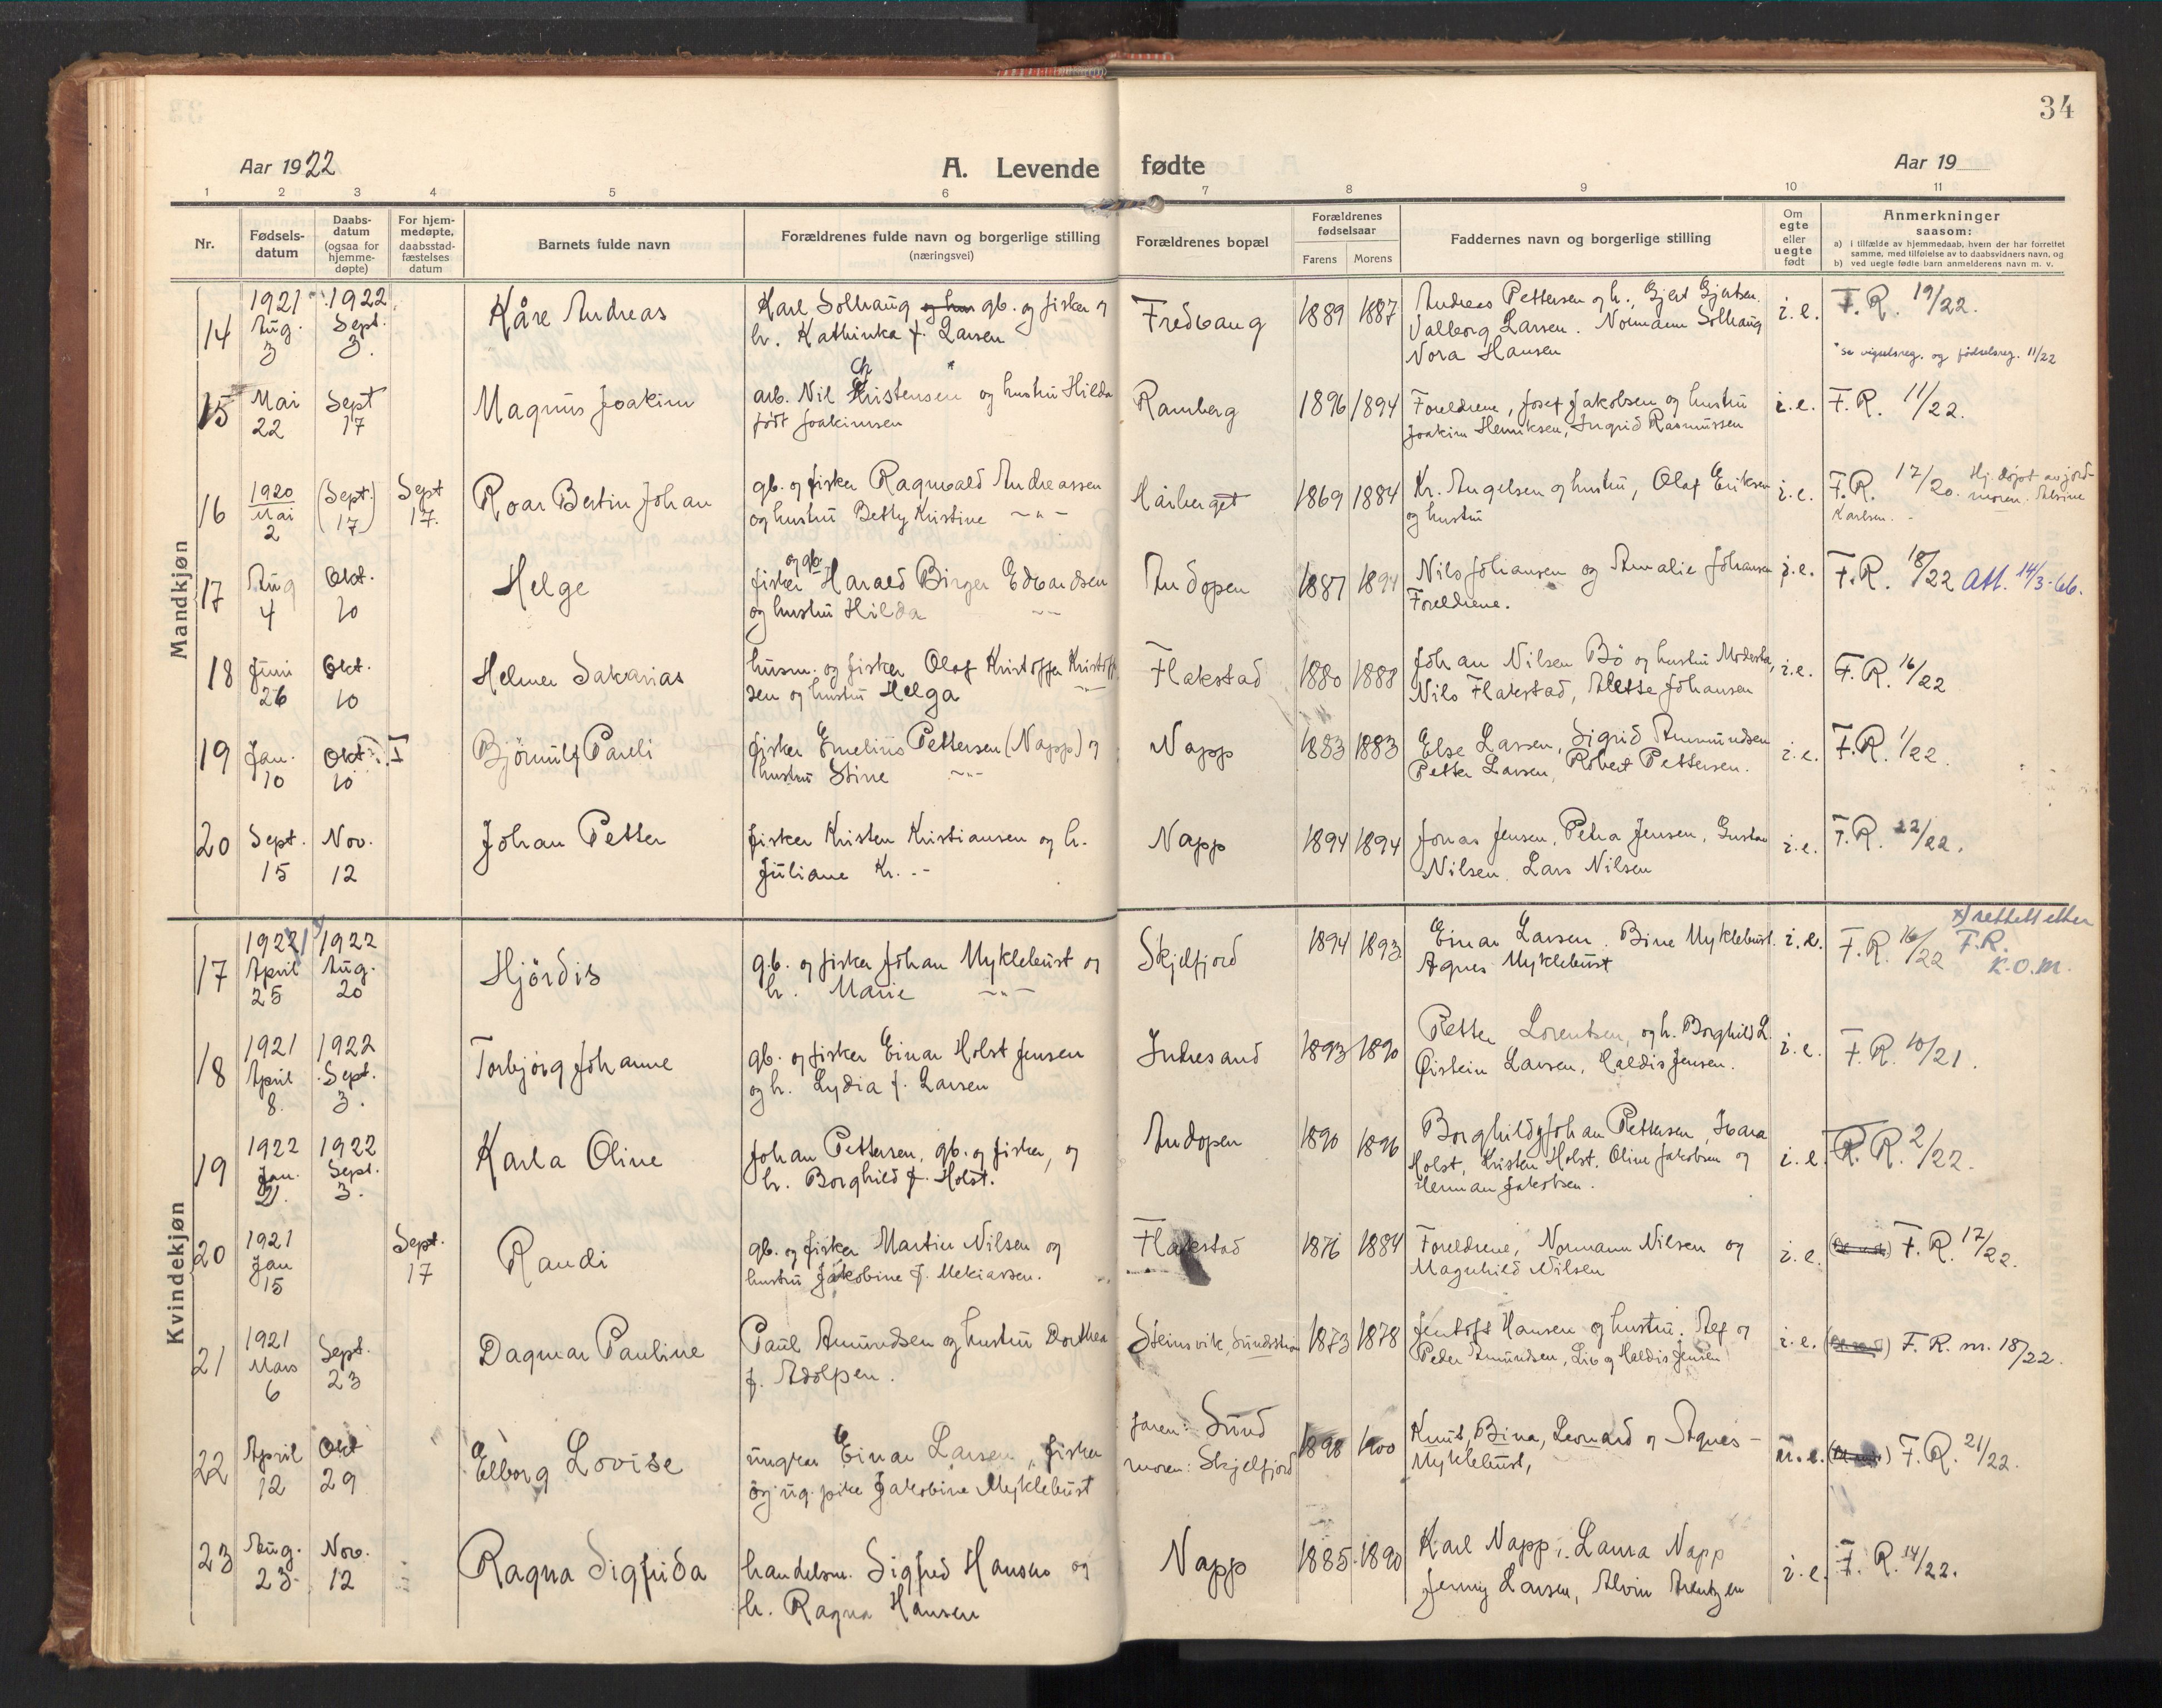 34
Aar 1922
A. Levende fødte
Aar 19
1 2 3 4 5 6 7 8 9 10 11
Nr.
Fødsels-
datum
Daabs-
datum
(ogsaa for
hjemme-
døpte)
For hjem-
medøpte,
daabsstad-
fæstelses
datum
Barnets fulde navn
Forældrenes fulde navn og borgerlige stilling
(næringsvei)
Forældrenes bopæl
Forældrenes
fødselsaar
Farens Morens
Faddernes navn og borgerlige stilling
Om
egte
eller
uegte
født
Anmerkninger
saasom:
a) i tilfælde av hjemmedaab, hvem der har forrettet
samme, med tilføielse av to daabsvidners navn, og
b) ved uegte fødte barn anmelderens navn m. v.
Mandkjøn
14
1921 Aug. 3
1922 Sept. 3.
Kåre Andreas
Karl Solhaug og hu gb. og fisker og
h. Kathinka f. Larsen
Fredvang
1889 1887
Andreas Pettersen og h., Gjert Gjertsen.
Valborg Larsen. Normann Solhaug
Nora Hansen
i.e.
F.R. 19/22.
* se vigselsreg. og fødselsreg. 11/22
15
Mai 22
Sept 17
Magnus Joakim
arb. Nil Christensen * og hustru Hilda
født Joakimsen
Ramberg
1896 1894
Foreldrene, Josef Jakobsen og hustru
Joakim Henriksen, Ingrid Rasmussen
i.e.
F.R. 11/22.
16
1920 Mai 2
(Sept. 17)
Sept 17.
Roar Bertin Johan
gb. og fisker Ragnvald Andreassen
og hustru Betty Kristine -"-
Hårberget
1869 1884
Kr. Angelsen og hustru, Olaf Eriksen
og hustru
i.e.
F.R. 17/20. Hj. døpt av jord-
moren. Alvine
Karlsen.
17
Aug 4
Okt. 10
Helge
og gb.
fisker Harald Birger Edvardsen
og hustru Hilda -"-
Andopen
1887 1894
Nils Johansen og Amalie Johansen
Foreldrene.
i.e.
F.R. 18/22 Att. 14/3-66.
18
Juni 26
Okt. 10
Helmer Sakarias
husm. og fisker Olaf Kristoffer Kristoff
sen og hustru Helga -"-
Flakstad
1880 1888
Johan Nilsen Bö og hustru Modesta,
Nils Flakstad, Alette Johansen
i.e.
F.R. 16/22
19
Jan. 10
Okt. 10
Björnulf Pauli
fisker Emelius Pettersen (Napp) og
hustru Stine -"-
Napp
1883 1883
Else Larsen, Sigrid Ammundsen
Petter Larsen, Robert Pettersen.
i.e.
F.R. 1/22.
20
Sept. 15
Nov. 12
Johan Petter
fisker Kristen Kristiansen og h.
Juliane Kr. -
Napp
1894 1894
Jonas Jensen, Petra Jensen, Gustav
Nilsen, Lars Nilsen
i.e.
F.R. 22/22.
Kvindekjøn
17
1922 April 25
1922 Aug. 20
Hjördis
gb. og fisker Johan Myklebust og
h. Marie -"-
Skjelfjord
1894 1893
Einar Larsen. Bine Myklebust.
Agnes Myklebust
i.e.
F.R. 16/22
x) rettet etter
F.R.
K.O.M.
18
1921 April 8.
1922 Sept. 3.
Torbjörg Johanne
gb. og fisker Einar Holst Jensen
og h. Lydia f. Larsen
Indresand
1893 1890
Petter Lorentsen, og h. Borghild L.
Öistein Larsen, Haldis Jensen.
i.e.
F.R. 10/21.
19
1922 Jan. 21.
1922 Sept. 3.
Karla Oline
Johan Pettersen, gb. og fisker, og
h. Borghild f. Holst.
Andopen
1890 1896
Borghild og Johan Pettersen, Ivara
Holst, Kristen Holst. Oline Jakobsen og
Herman Jakobsen.
i.e.
F.R. 2/22.
20
1921 Jan 15
Sept. 17
Randi
gb. og fisker Martin Nilsen og
hustru Jakobine f. Mekiassen.
Flakstad
1876 1884
Foreldrene, Normann Nilsen og
Magnhild Nilsen
i.e.
F.R. 17/22.
21
1921 Mars 6
Sept. 23
Dagmar Pauline
Paul Amundsen og hustru Dorthea
f. Adolpsen.
Steinsvik, Sundstrøm
1873 1878
Jentoft Hansen og hustru. Alf og
Peder Amundsen, Liv og Haldis Jensen
i.e.
F.R. nr. 18/22.
22
April 12
Okt 29
Elborg Lovise
ungkar Einar Larsen, fisker
og ug. pike Jakobine Myklebust
faren: Sund
moren: Skjelfjord
1898 1900
Knut, Bina, Leonard og Agnes -
Myklebust,
u.e.
F.R. 21/22.
23
Aug. 23
Nov. 12
Ragna Sigfrida
handelsm. Sigfred Hansen og
h. Ragna Hansen
Napp
1885 1890
Karl Napp, Laura Napp
Jenny Larsen, Alvin Arentzen
i.e.
F.R. 14/22.